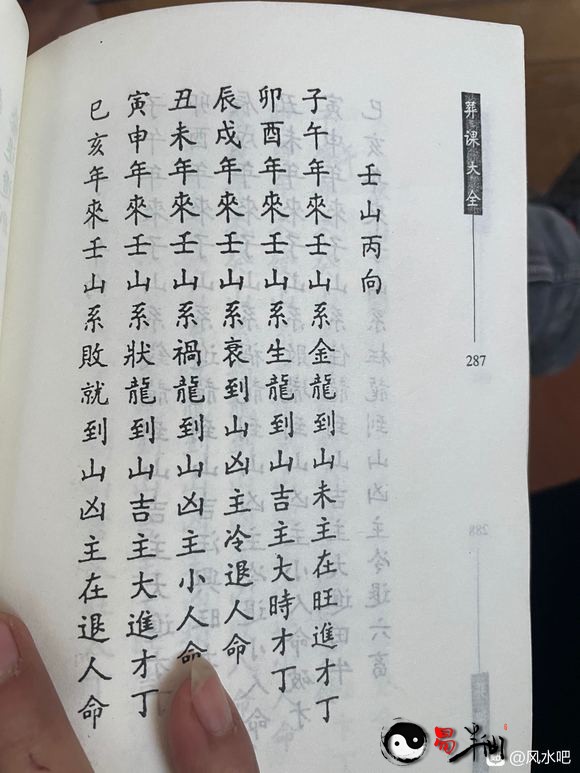 葬课大全
287
壬山丙向
子午年來壬山系金龍到山未主在旺進才丁
卯酉年來壬山系生龍到山吉主大時才丁
辰戌年來壬山系衰到山凶主冷退人命
丑未年來壬山系禍龍到山凶主小人命
寅申年來壬山系狀龍到山吉主大進才丁
巳亥年來壬山系敗就到山凶主在退人命
288
易半仙
@风水吧